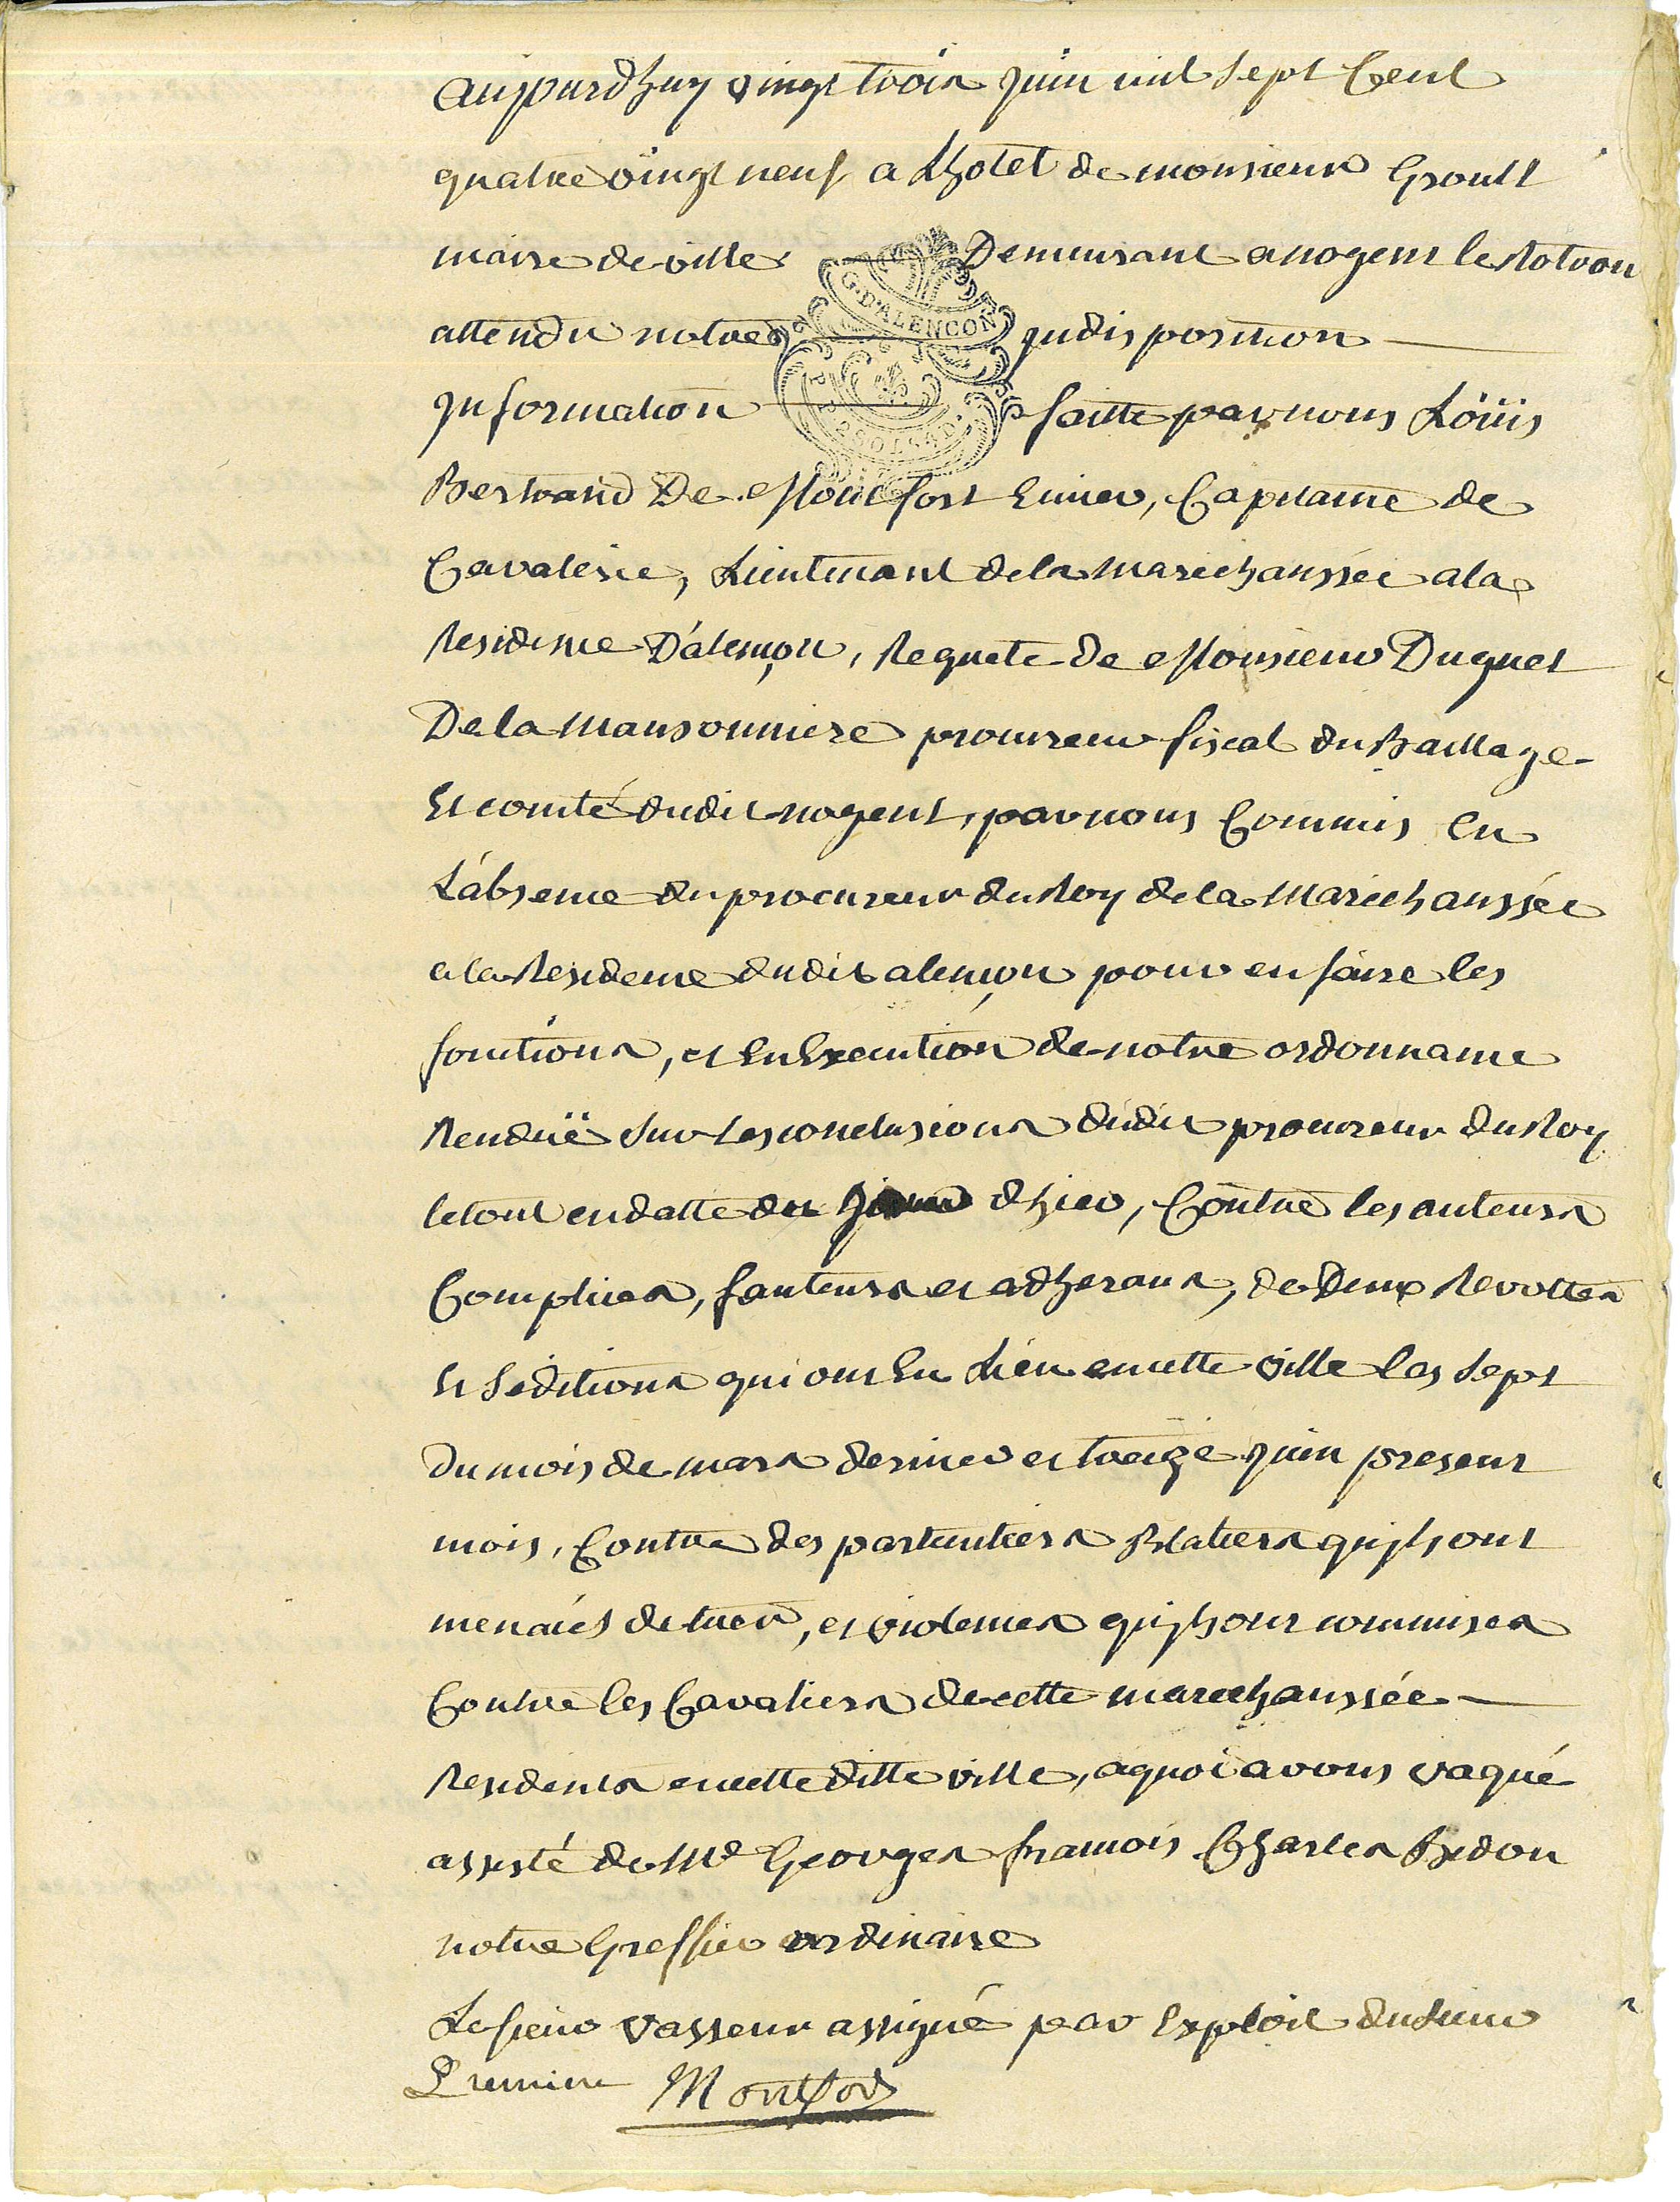 aujourdhuy vingt trois juin mil sept Cent
quatre vingt neuf a Lhotel de monsieur Groult
maire de ville Demeurant a nogent le Rotrou
attendu notre jndisposition
G. D'ALENCON
jnformation faitte par nous Loüis
Bertrand De Montfort Ecuier, Capitaine de
Cavalerie, Lieutenant de la Marechaussée a la
Residence D'alençon, Requete de Monsieur Duguet
De la Mansonniere procureur fiscal du Baillage
Et comté dudit nogent, par nous Commis en
L'absence du procureur du Roy de la Marechaussée
a la Residence dudit alençon pour en faire les
fonctions, et En Execution de notre ordonnance
Renduë sur Les conclusions dudit procureur du Roy
le tout en datte du d hier, Contre les auteurs
Complices, fauteurs et adherans, de Deux Revoltes
Et Seditions qui ont Eu Lieu en cette ville les sept
du mois de mars dernier et treize juin present
mois, Contre des particuliers Blatiers qujls ont
menacés de tuer, et violences qujls ont commises
Contre les Cavaliers de cette marechaussée
Residents en cette ditte ville, a quoi avons vaqué
assisté de Me Georges francois Charles Bidon
notre Greffier ordinaire
Le sieur vasseur assigné par Exploit du sieur
Premiere Montfort